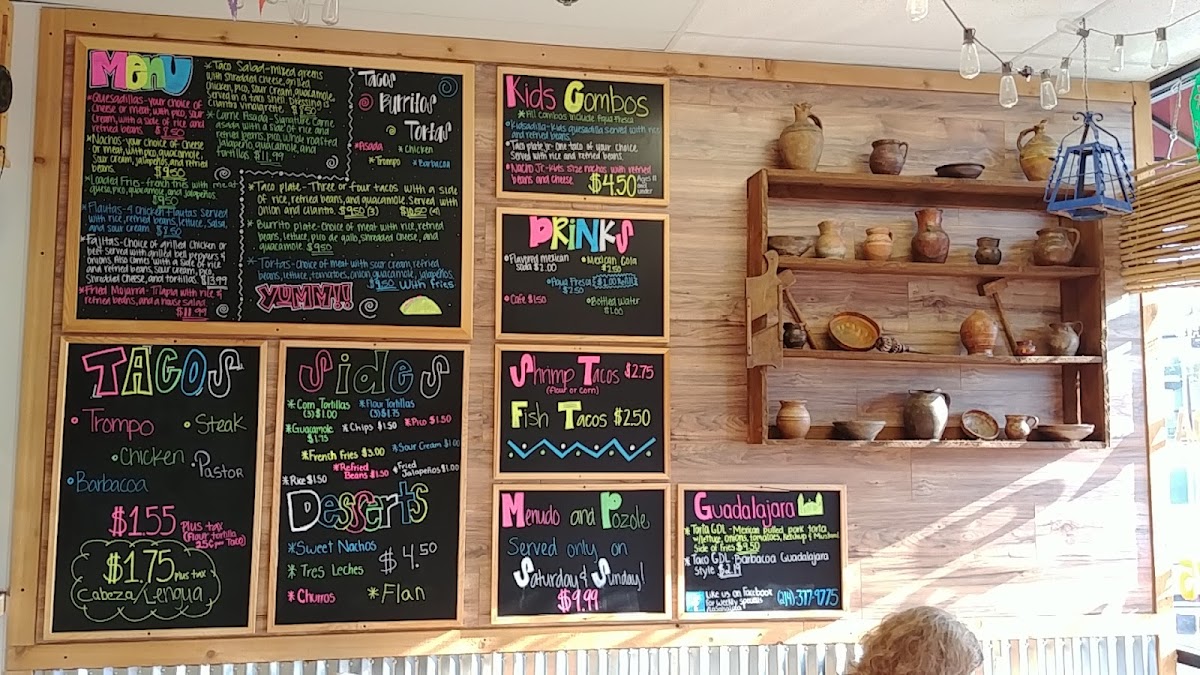 Menu
*Quesadillas-your choice of
cheese or meat, with pico, sour
cream, with a side of rice and
refried beans.
*Nachos-your choice of cheese
or meat, with pico, guacamole,
sour cream, jalapeños, and refried
beans. $9.50
*Loaded Fries-french fries with meat
queso, pico, guacamole, and jalapeños.
$9.50
*Flautas-4 chicken flautas served
with rice, refried beans, lettuce, salsa,
and sour cream
*Fajitas-Choice of grilled chicken or
beef served with grilled bell peppers &
onions. Also comes with a side of rice
and refried beans, sour cream, pico
shredded cheese, and tortillas. $13.99
*Fried Mojarra-Tilapia with rice &
refried beans, and a house salad
$11.99
*Taco Salad-mixed greens
with shredded cheese, grilled
chicken, pico, sour cream, guacamole,
served in a taco shell. Dressing is
cilantro vinaigrette.
*Carne Asada-Signature carne
asada with a side of rice and
refried beans, pico, whole roasted
jalapeño, guacamole, and
tortillas $11.99
Tacos
Burritos
Tortas
*Asada
*Chicken
*Trompo
*Barbacoa
*Taco plate-Three or four tacos with a side
of rice, refried beans, and guacamole. Served with
onion and cilantro. $9.50 (3) $10.50 (4)
*Burrito plate-Choice of meat with rice, refried
beans, lettuce, pico de gallo, shredded cheese, and
guacamole $9.50
*Tortas-choice of meat with sour cream, refried
beans, lettuce, tomatoes, onion, guacamole, jalapeños
$9.50 with fries
YUMM!!
Kids Combos
*All combos include Agua Fresca
*Kidsadilla-Kids quesadilla served with rice
and refried beans.
*Taco plate jr-one taco of your choice.
Served with rice and refried beans.
*Nacho Jr-Kids size nachos with refried
beans and cheese $4.50 Ages 11
and
under
Drinks
*Flavored mexican
soda $2.00
*Mexican Cola
$2.50
*Agua Fresca
$2.50
$1.00 Refill
*Café $1.50
*Bottled Water
$1.00
TACOS
*Trompo
*Steak
*Chicken
*Pastor
*Barbacoa
$1.55 plus tax
(flour tortilla
25¢ per taco)
$1.75 plus tax
Cabeza/Lengua
Sides
*Corn Tortillas
(3) $1.00
*Flour Tortillas
(3) $1.75
*Guacamole
$1.75
*Chips $1.50
*Pico $1.50
*French Fries $3.00
*Sour Cream $1.00
*Rice $1.50
*Refried
Beans $1.50
*Fried
Jalapeños $1.00
Desserts
*Sweet Nachos
$4.50
*Tres Leches
*Churros
*Flan
Shrimp Tacos $2.75
(flour or corn)
Fish Tacos $2.50
Menudo and Pozole
Served only on
Saturday & Sunday!
$9.99
Guadalajara
*Torta GDL-Mexican pulled pork torta
w/lettuce, onions, tomatoes, ketchup & mustard
Side of fries $9.50
*Taco GDL-Barbacoa Guadalajara
Style $2.19
Like us on Facebook
for weekly specials
(214)-377-9775